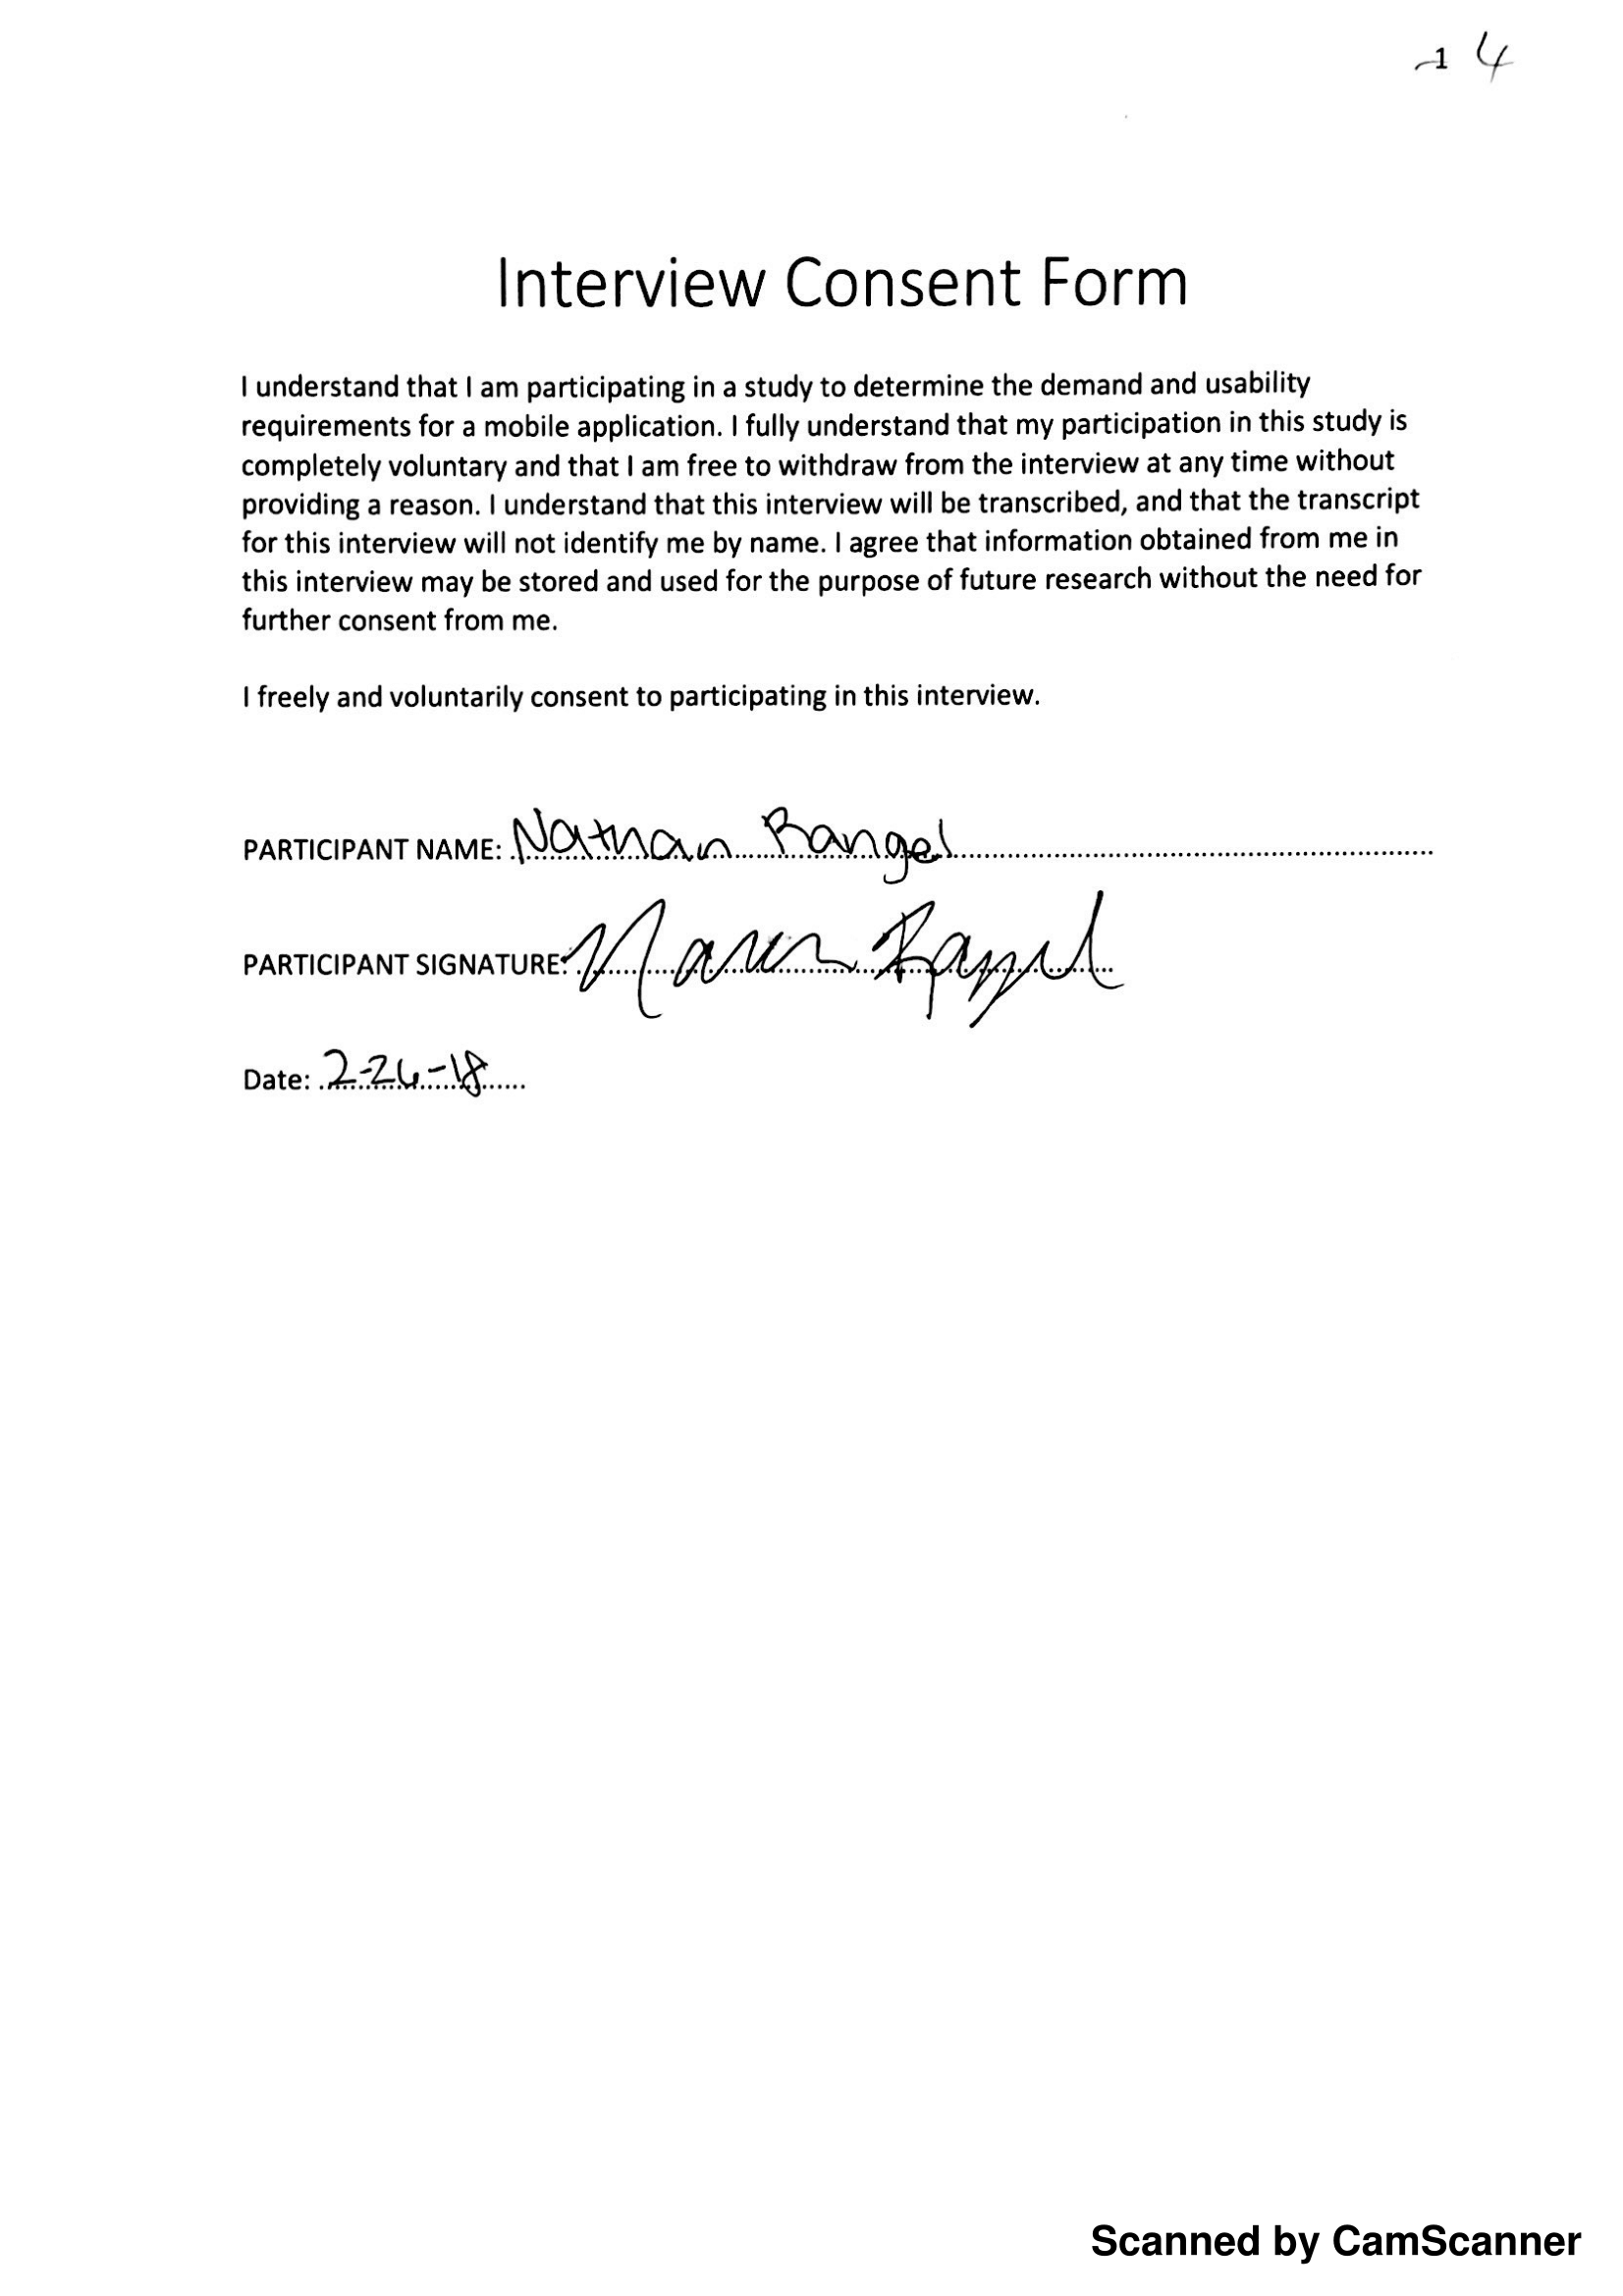 1 4
Interview Consent Form
I understand that I am participating in a study to determine the demand and usability
requirements for a mobile application. I fully understand that my participation in this study is
completely voluntary and that I am free to withdraw from the interview at any time without
providing a reason. I understand that this interview will be transcribed, and that the transcript
for this interview will not identify me by name. I agree that information obtained from me in
this interview may be stored and used for the purpose of future research without the need for
further consent from me.
I freely and voluntarily consent to participating in this interview.
PARTICIPANT NAME: Nathan Rangel
PARTICIPANT SIGNATURE: Nathan Rangel
Date: 2-26-18
Scanned by CamScanner